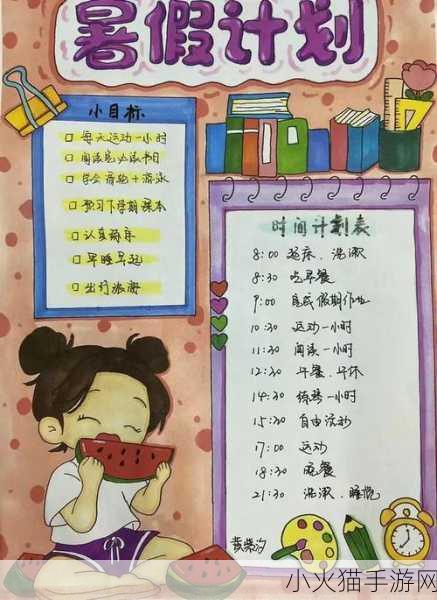 暑假计划
小目标
□ 每天运动一小时
□ 阅读完必读书目
□ 学会滑轮+游泳
□ 预习下学期课本
□ 认真练字
□ 早睡早起
□ 出行旅游
时间计划表
8:00 起床、洗漱
8:30 吃早餐
9:00 完成假期作业
10:30 运动一小时
11:30 阅读一小时
12:30 午餐、午休
14:30 练琴一小时
15:30 自由活动
17:00 运动
18:30 晚餐
21:30 洗漱、睡觉
小火猫手游网